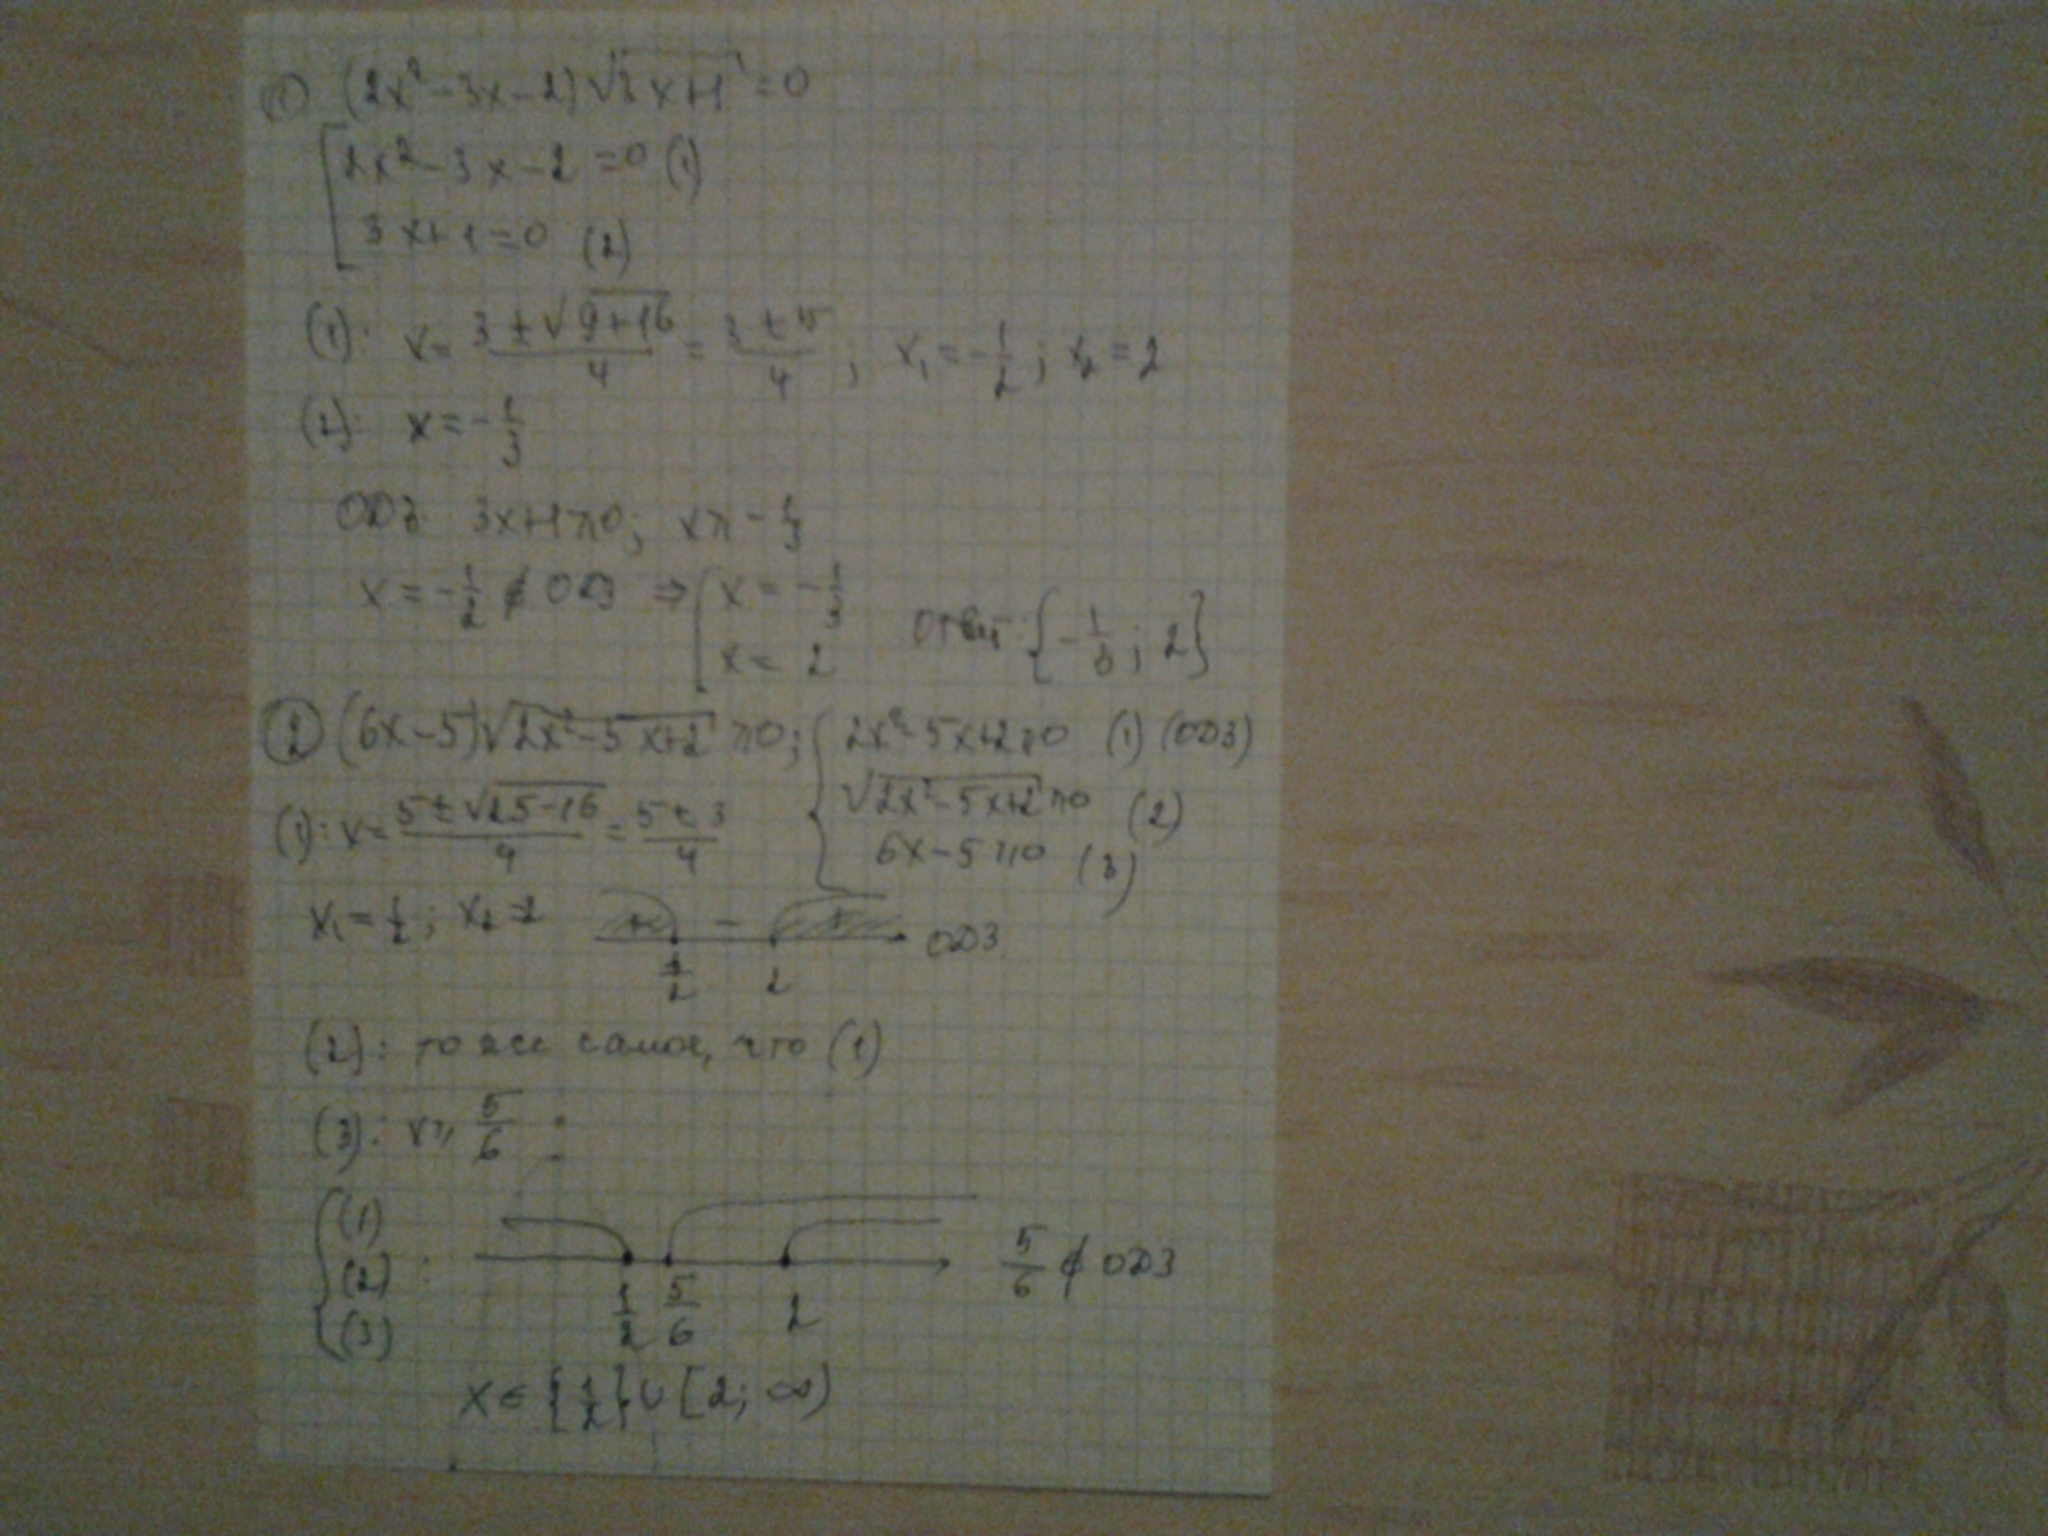 ① (2x²-3x-2)√3x+1 =0
2x²-3x-2=0 (1)
3x+1=0 (2)
(1): x= 3±√9+16 / 4 = 3±5 / 4; x₁=-1/2; x₂=2
(2): x=-1/3
ОДЗ 3x+1≥0; x≥-1/3
x=-1/2 ∉ ОДЗ ⇒ [ x=-1/3
x=2 Ответ: {-1/3; 2}
② (6x-5)√2x²-5x+2 ≥0; { 2x²-5x+2≥0 (1) (ОДЗ)
√2x²-5x+2 ≥0 (2)
6x-5≥0 (3)
(1): x= 5±√25-16 / 4 = 5±3 / 4
x₁=1/2; x₂=2
+ - + ОДЗ
1/2 2
(2): то же самое, что (1)
(3): x≥5/6
{ (1)
(2) :
(3)
1/2 5/6 2
5/6 ∉ ОДЗ
x∈{1/2}∪[2;∞)